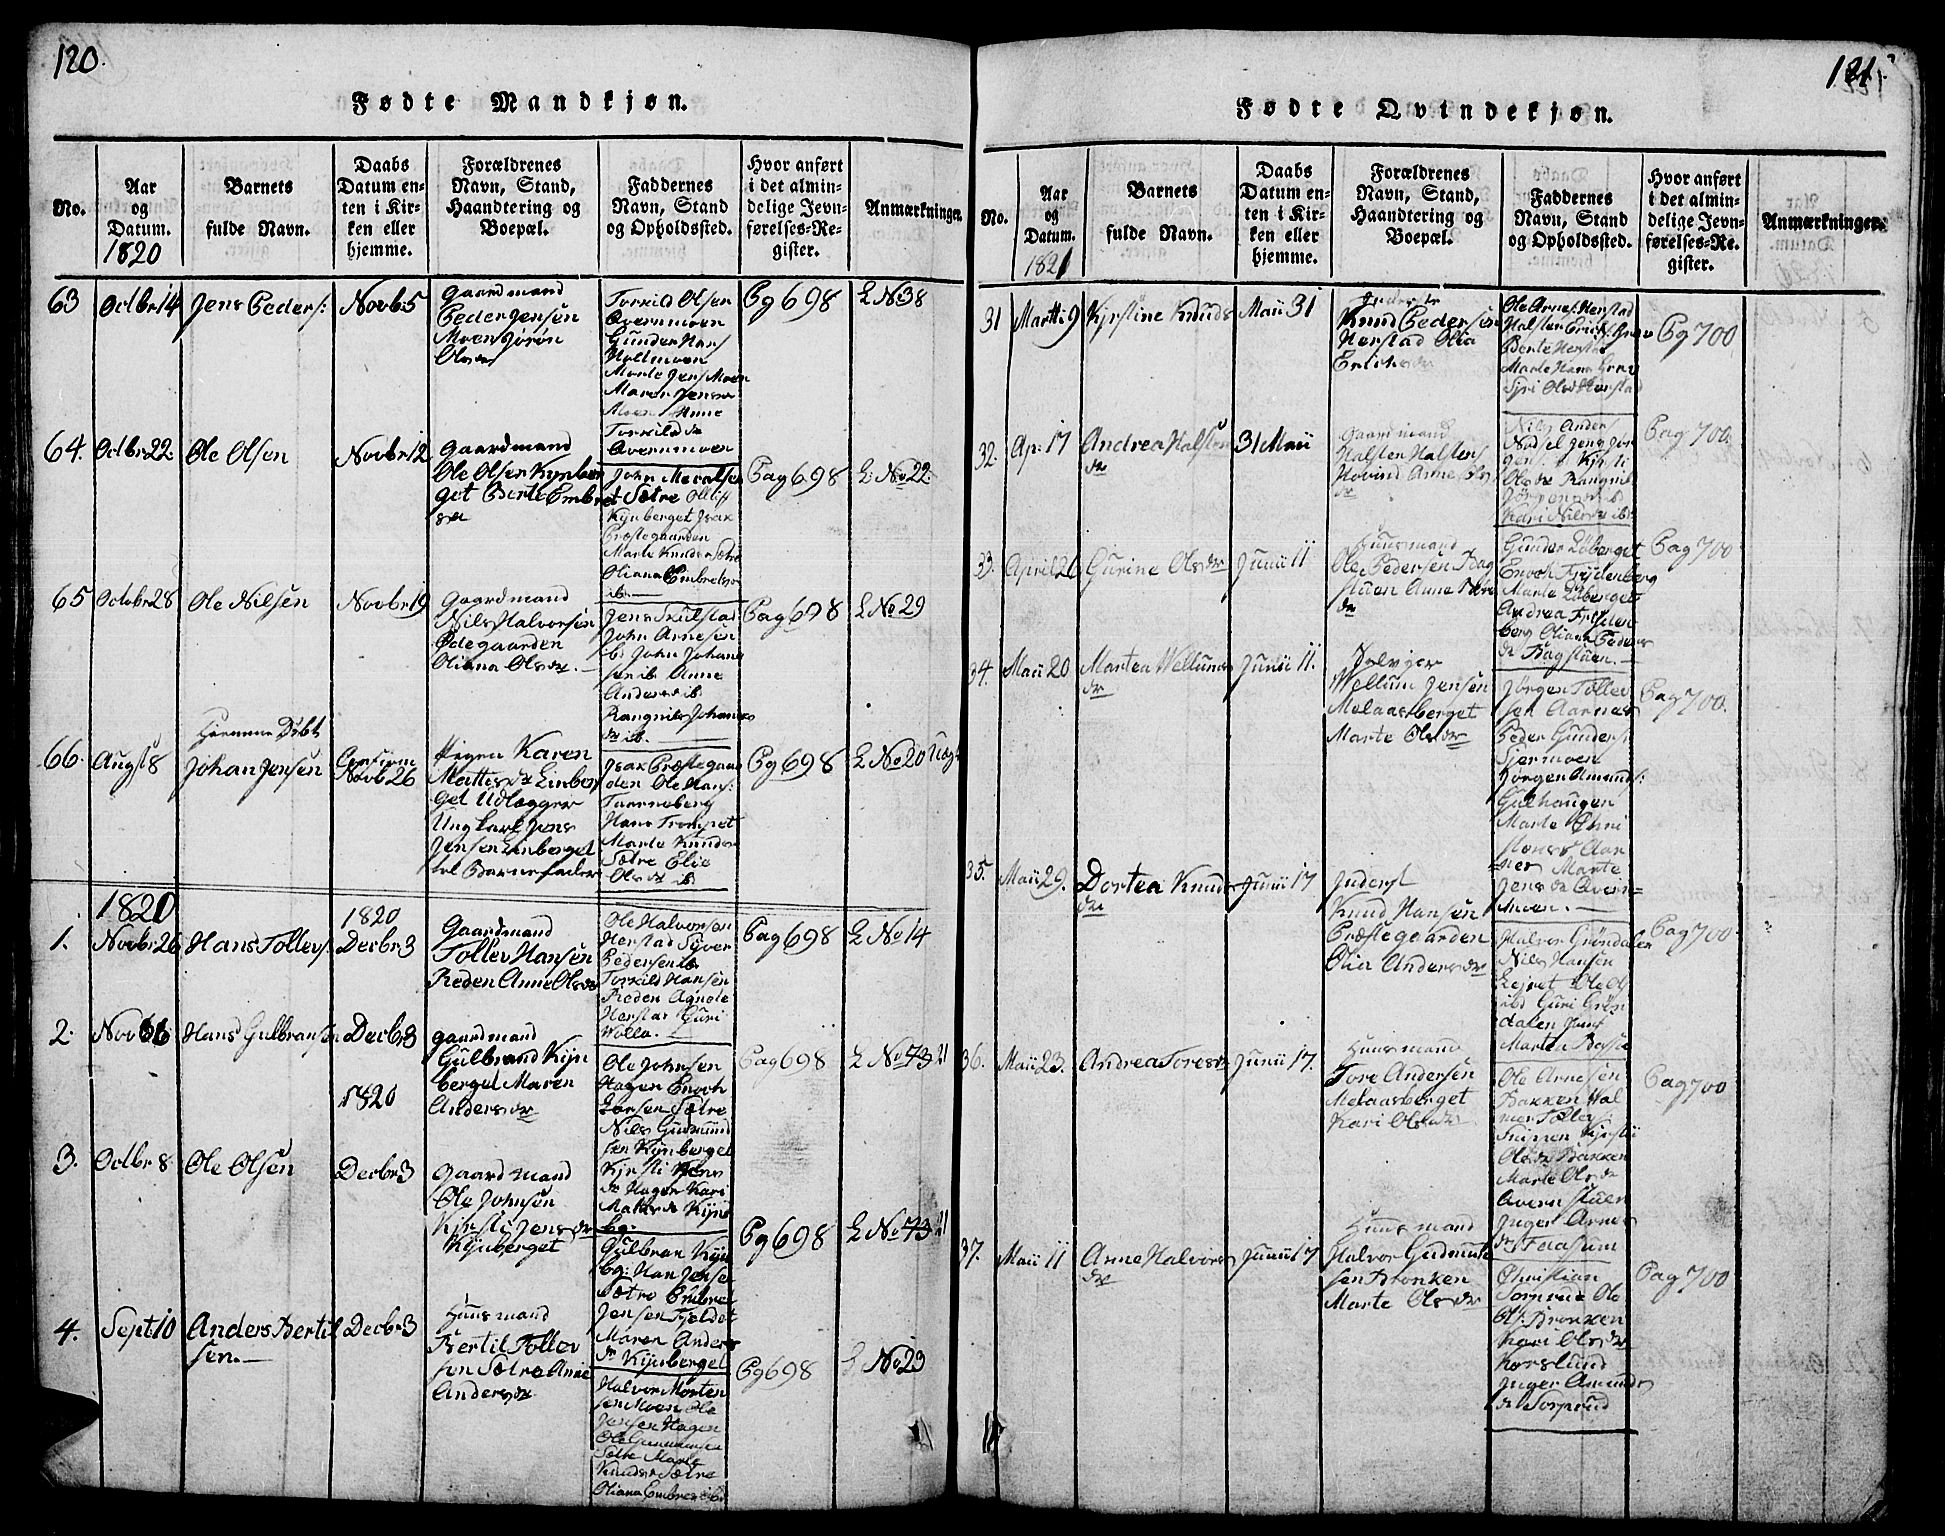 120.
Fødte Mandkjøn.
No.
Aar
og
Datum.
1820
Barnets
fulde Navn.
Daabs
Datum en-
ten i Kir-
ken eller
hjemme.
Forældrenes
Navn, Stand,
Haandtering og
Boepæl.
Faddernes
Navn, Stand
og Opholdssted.
Hvor anført
i det almin-
delige Jevn-
førelses-Re-
gister.
Anmærkninger.
63
Octbr 14
Jens Peders:
Novbr 5
Gaardmand
Peder Jensen
Moen Jørøn
Olsdr
Torkild Olsen
Overnmoen
Gunder Hans
Holtmoen
Marte Jens Moen
Maren Jensdr
Moen Anne
Torkildsdr
Overnmoen
Pg 698
L No 38
64.
Octbr 22
Ole Olsen
Novbr 12
Gaardmand
Ole Olsen Kynber
get Berte Embret
sdr
Sætre
Kynberget Isak
Præstegaarden
Marte Knudsdr Sætre
Oliana Embretsdr
ib.
Pag 698
L: No 22.
65
Octobr 28
Ole Nilsen
Novbr 19
Gaardmand
Nils Halvorsen
Ødegaarden
Oliana Olsdr.
Jens Skulstad
John Arnesen
ib. John Johane
sen ib Anne
Andersd ib
Rangnild Johanes
dr ib.
Pag 698
L No 29
66.
Augst 8
Hjemme Døbt
Johan Jensen
Confirm
Novb 26
Pigen Karen
Mattisdr Linber
get Udlægger
Ungkarl Jens
Jensen Linberget
til Barnefader
Isak Præstegaar
den Ole Hans:
Taarneberg
Hans Trompet
Marte Knudsd
Sætre Elie
Olsdr ib
Pg 698
L No 20
1820
1.
Novbr 26
Hans Tollevs.
1820
Decbr 3
Gaardmand
Tollev Hansen
Reden Anne Olsdr
Ole Halvorsen
Herstad Syver
Pedersen ib.
Torkild Hansen
Reden Agnete
Herstad Guri
Wolla.
Pag 698
L No 14
2.
Hans Gulbransen
Decbr 3
gaardmand
Gulbrand Kyn
berget Maren
Andersdr
1820
Ole Johnsen
Hagen Enoch
Larsen Sætre
Nils Gudmund
sen Kynberget
Kjrsti Jens
dr Hagen Kari
Matisdr Kyn
bg:
Pag 698
L No 73 21
3.
Octbr 8.
Ole Olsen
Decbr 3
Gaardmand
Ole Johnsen
Kjrsti Jensdr
Kynberget
Gulbran Kyn
bg: Han Jense
Sætre Embret
Jensen Fjeldet
Maren Anders
dr Kynberget
Pg 698
L No 73 21
4.
Sept 10
Anders Bertil
sen.
Decbr 3
Huusmand
Bertil Tollev
sen Sætre Anne
Andersdr
Halvor Morten
sen Moen Ole
Jensen Hagen
Sætre Marte
Knudsdr Sætre
Oliana Embretsd ib.
Pg 698
L No 23
121.
Fødte Qvindekjøn.
No.
Aar
og
Datum.
1821
Barnets
fulde Navn.
Daabs
Datum en-
ten i Kir-
ken eller
hjemme.
Forældrenes
Navn, Stand,
Haandtering og
Boepæl.
Faddernes
Navn, Stand
og Opholdssted.
Hvor anført
i det almin-
delige Jevn-
førelses-Re-
gister.
Anmærkninger.
31
Martii 9
Kjrstine Knuds
Maii 31
Knud Pedersen
Herstad Olia
Erichsdr
Ole Arnes Herstad
Halsten Erichs
Berte Herstad
Marte Hans
Siri Olsdr Herstad
Pg 700
32.
Ap: 17
Andrea Halsten
dr
31 Maii
Gaardmand
Halsten Halstens
Hovind Anne Ols
dr
Nils Anders
Nodsel Jens Jør
gens. Kjrsti
Olsdr Rangnil
Jørgensdr ib
Kari Nilsdr ib.
Pag 700.
33.
April 21
Gurine Olsdr
Junii 11
Huusmand
Ole Pedersen Bag
stuen Anne
dr
Gunder Løberget
Enoch Frydenberg
Marte Løberget
Andrea Fryden
berg Oliana Peders
dr Bagstuen.
Pag 700
34.
Maii 20
Martea Wellums
dr
Junii 11.
Selvejer
Wellum Jensen
Melaasberget
Marte Olsdr
Jørgen Tollev
sen Aarnes
Peder Gunders
Sjermoen
Jørgen Amunds:
Gulhaugen
Marte Chri
stens Aar
nes Marte
Jensdr Overn
moen.
Pag 700.
35.
Maii 29.
Dortea Knuds
dr
Junii 17
Inderst
Knud Hansen
Præstegaarden
Olia Andersdr
Halvor Grøndalen
Nils Hansen
Lejret Ole
Guri Grøn
dalen
Marten
Pag 700.
36.
Maii 23.
Andrea Toresdr
Junii 17.
Huusmand
Tore Andersen
Melaasberget
Kari Olsdr
Ole Arnesen
Bakken Hal
vor Tollevs:
Snippen Kjrsti
Olsdr Bakken
Marte Olsdr
Overnstuen
Inger Arnes
dr Faasum
Pag 700
37.
Maii 11
Anne Halvors
dr
Junii 17
Huusmand
Halvor Gudmund
sen Bronken
Marte Olsdr
Christian
Torprud Ole
Ols: Bronken
Kari Olsdr
Horslund
Inger Amunds
dr Torprud
Pag 700